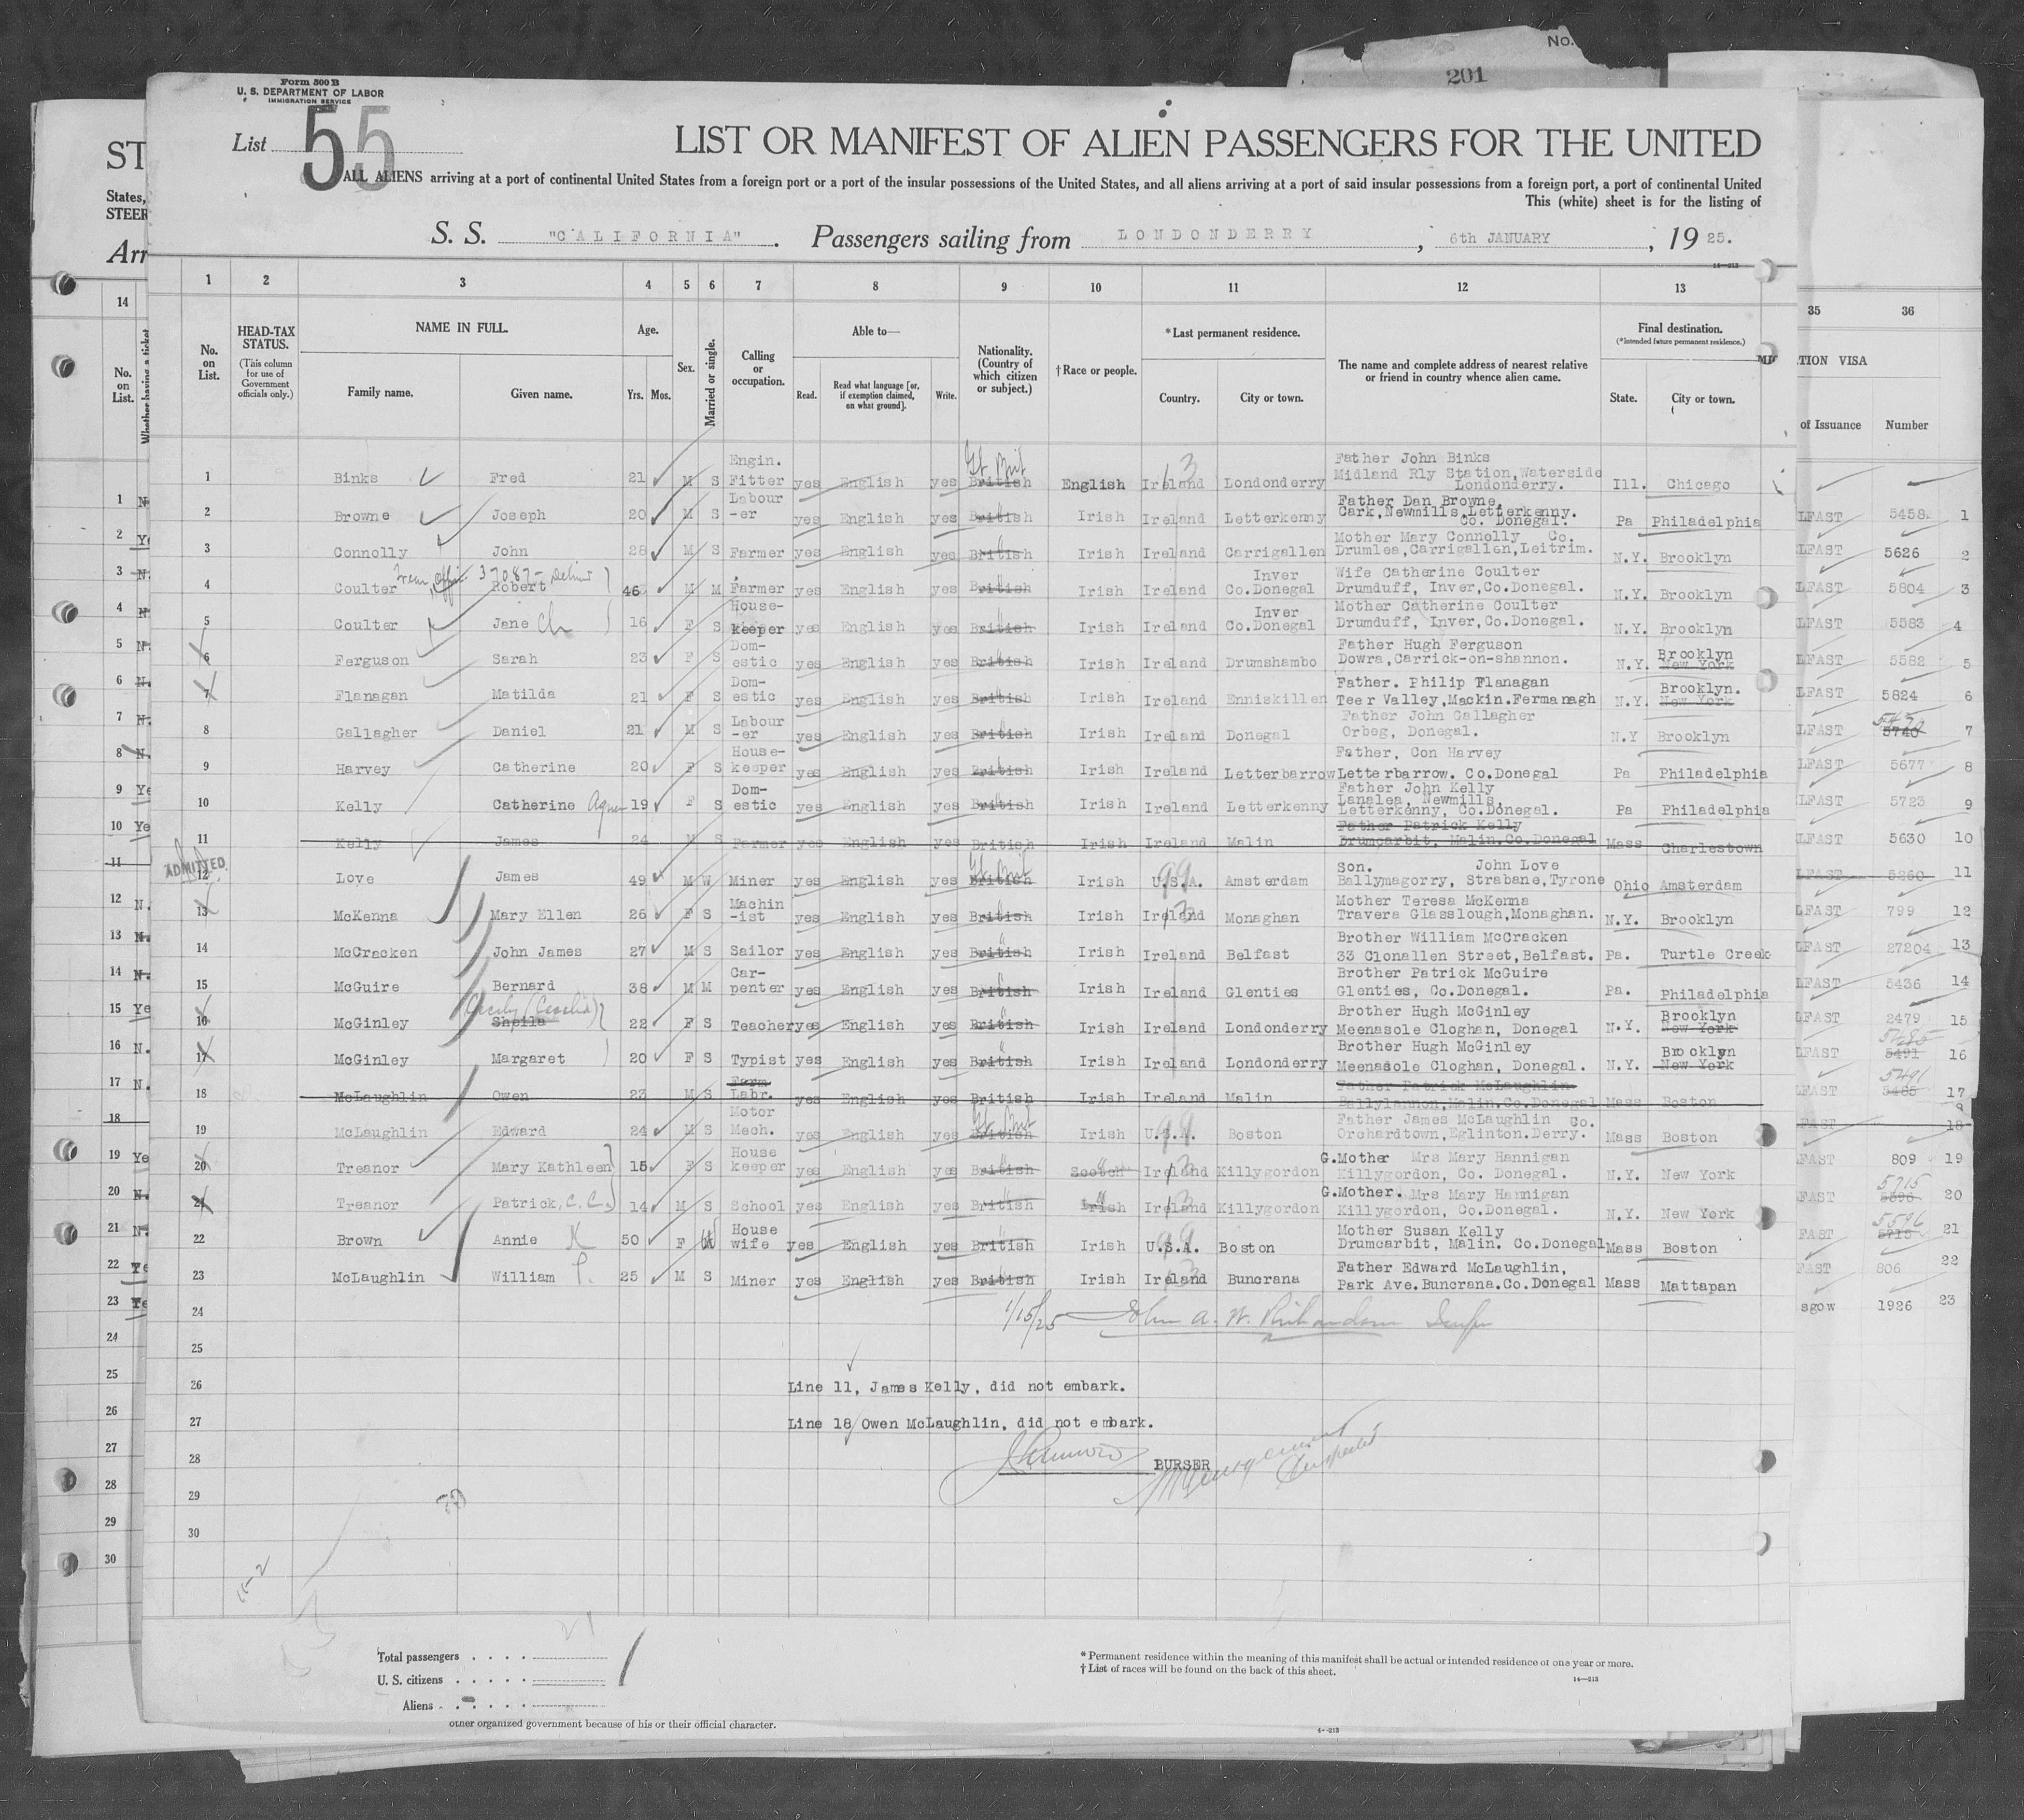 No.
201
Form 500 B
U. S. DEPARTMENT OF LABOR
IMMIGRATION SERVICE
List 55
LIST OR MANIFEST OF ALIEN PASSENGERS FOR THE UNITED
ALL ALIENS arriving at a port of continental United States from a foreign port or a port of the insular possessions of the United States, and all aliens arriving at a port of said insular possessions from a foreign port, a port of continental United
This (white) sheet is for the listing of
S. S. "CALIFORNIA". Passengers sailing from LONDONDERRY, 6th JANUARY, 1925.
14—213
ST
States,
STEER
Arr
1 2 3 4 5 6 7 8 9 10 11 12 13
14 35 36
No. on List.
HEAD-TAX STATUS.
(This column for use of Government officials only.)
NAME IN FULL.
Family name. Given name.
Age.
Yrs. Mos.
Sex.
Married or single.
Calling or occupation.
Able to—
Read. Read what language [or, if exemption claimed, on what ground]. Write.
Nationality. (Country of which citizen or subject.)
†Race or people.
*Last permanent residence.
Country. City or town.
The name and complete address of nearest relative or friend in country whence alien came.
Final destination.
(*Intended future permanent residence.)
State. City or town.
No. on List.
Whether having a ticket
TION VISA
of Issuance Number
1 Binks Fred 21 M S Engin. Fitter yes English yes Gt. Brit British English Ireland Londonderry Father John Binks Midland Rly Station, Waterside Londonderry. Ill. Chicago
2 Browne Joseph 20 M S Labour-er yes English yes British Irish Ireland Letterkenny Father Dan Browne, Cark, Newmills, Letterkenny. Co. Donegal. Pa Philadelphia
3 Connolly John 28 M S Farmer yes English yes British Irish Ireland Carrigallen Mother Mary Connolly Co. Drumlea, Carrigallen, Leitrim. N.Y. Brooklyn
4 Coulter Robert 46 M M Farmer yes English yes British Irish Ireland Inver Co.Donegal Wife Catherine Coulter Drumduff, Inver, Co.Donegal. N.Y. Brooklyn
5 Coulter Jane 16 F S House-keeper yes English yes British Irish Ireland Inver Co.Donegal Mother Catherine Coulter Drumduff, Inver, Co.Donegal. N.Y. Brooklyn
6 Ferguson Sarah 23 F S Dom-estic yes English yes British Irish Ireland Drumshambo Father Hugh Ferguson Dowra, Carrick-on-shannon. N.Y. Brooklyn New York
7 Flanagan Matilda 21 F S Dom-estic yes English yes British Irish Ireland Enniskillen Father. Philip Flanagan Teer Valley, Mackin. Fermanagh N.Y. Brooklyn. New York
8 Gallagher Daniel 21 M S Labour-er yes English yes British Irish Ireland Donegal Father John Gallagher Orbeg, Donegal. N.Y Brooklyn
9 Harvey Catherine 20 F S House-keeper yes English yes British Irish Ireland Letterbarrow Father, Con Harvey Letterbarrow. Co.Donegal Pa Philadelphia
10 Kelly Catherine Agnes 19 F S Dom-estic yes English yes British Irish Ireland Letterkenny Father John Kelly Lanalea, Newmills, Letterkenny, Co.Donegal. Pa Philadelphia
11 Kelly James 24 M S Farmer yes English yes British Irish Ireland Malin Father Patrick Kelly Drumcarbit, Malin. Co.Donegal Mass Charlestown
ADMITTED
12 Love James 49 M W Miner yes English yes Gt. Brit British Irish U.S.A. 99 Amsterdam Son. John Love Ballymagorry, Strabane, Tyrone Ohio Amsterdam
13 McKenna Mary Ellen 26 F S Machin-ist yes English yes British Irish Ireland Monaghan Mother Teresa McKenna Travera Glasslough, Monaghan. N.Y. Brooklyn
14 McCracken John James 27 M S Sailor yes English yes British Irish Ireland Belfast Brother William McCracken 33 Clonallen Street, Belfast. Pa. Turtle Creek
15 McGuire Bernard 38 M M Car-penter yes English yes British Irish Ireland Glenties Brother Patrick McGuire Glenties, Co.Donegal. Pa. Philadelphia
16 McGinley Cecily (Cecelia) Sheila 22 F S Teacher yes English yes British Irish Ireland Londonderry Brother Hugh McGinley Meenasole Cloghan, Donegal N.Y. Brooklyn New York
17 McGinley Margaret 20 F S Typist yes English yes British Irish Ireland Londonderry Brother Hugh McGinley Meenasole Cloghan, Donegal. N.Y. Brooklyn New York
18 McLaughlin Owen 23 M S Farm Labr. yes English yes British Irish Ireland Malin Father Patrick McLaughlin Ballylannon, Malin. Co.Donegal Mass Boston
19 McLaughlin Edward 24 M S Motor Mech. yes English yes Gt. Brit British Irish U.S.A. 99 Boston Father James McLaughlin Co. Orchardtown, Eglinton. Derry. Mass Boston
20 Treanor Mary Kathleen 15 F S House keeper yes English yes British Scotch Ireland Killygordon G.Mother Mrs Mary Hannigan Killygordon, Co. Donegal. N.Y. New York
21 Treanor Patrick, C. C. 14 M S School yes English yes British Irish Ireland Killygordon G.Mother. Mrs Mary Hannigan Killygordon, Co.Donegal. N.Y. New York
22 Brown Annie K 50 F W House wife yes English yes British Irish U.S.A. 99 Boston Mother Susan Kelly Drumcarbit, Malin. Co.Donegal Mass Boston
23 McLaughlin William P. 25 M S Miner yes English yes British Irish Ireland Buncrana Father Edward McLaughlin, Park Ave. Buncrana. Co. Donegal Mass Mattapan
24 1/15/25 John A. W. Richardson
25
26 Line 11, James Kelly, did not embark.
27 Line 18 Owen McLaughlin, did not embark.
28 PURSER
29
30
11-2
LFAST 5458 1
LFAST 5626 2
LFAST 5804 3
LFAST 5583 4
LFAST 5582 5
LFAST 5824 6
LFAST 5740 7
LFAST 5677 8
LFAST 5723 9
LFAST 5630 10
LFAST 5260 11
LFAST 799 12
LFAST 27204 13
LFAST 5436 14
LFAST 2479 15
LFAST 5485 5491 16
LFAST 5491 5485 17
FAST 18
FAST 809 19
FAST 5715 5596 20
FAST 5596 5715 21
FAST 806 22
sgow 1926 23
Total passengers
U. S. citizens
Aliens
* Permanent residence within the meaning of this manifest shall be actual or intended residence of one year or more.
† List of races will be found on the back of this sheet.
14—213
other organized government because of his or their official character.